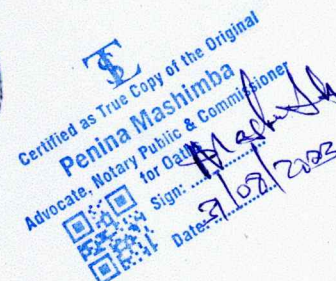 TLS
Certified as True Copy of the Original
Penina Mashimba
Advocate, Notary Public & Commissioner
for Oaths
Sign: ....................
Date: 31/08/2023